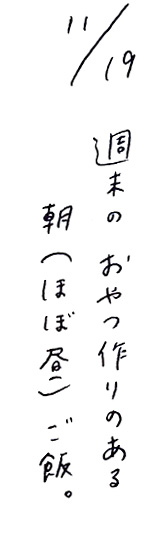 11/19
週末のおやつ作りのある
朝(ほぼ昼)ご飯。